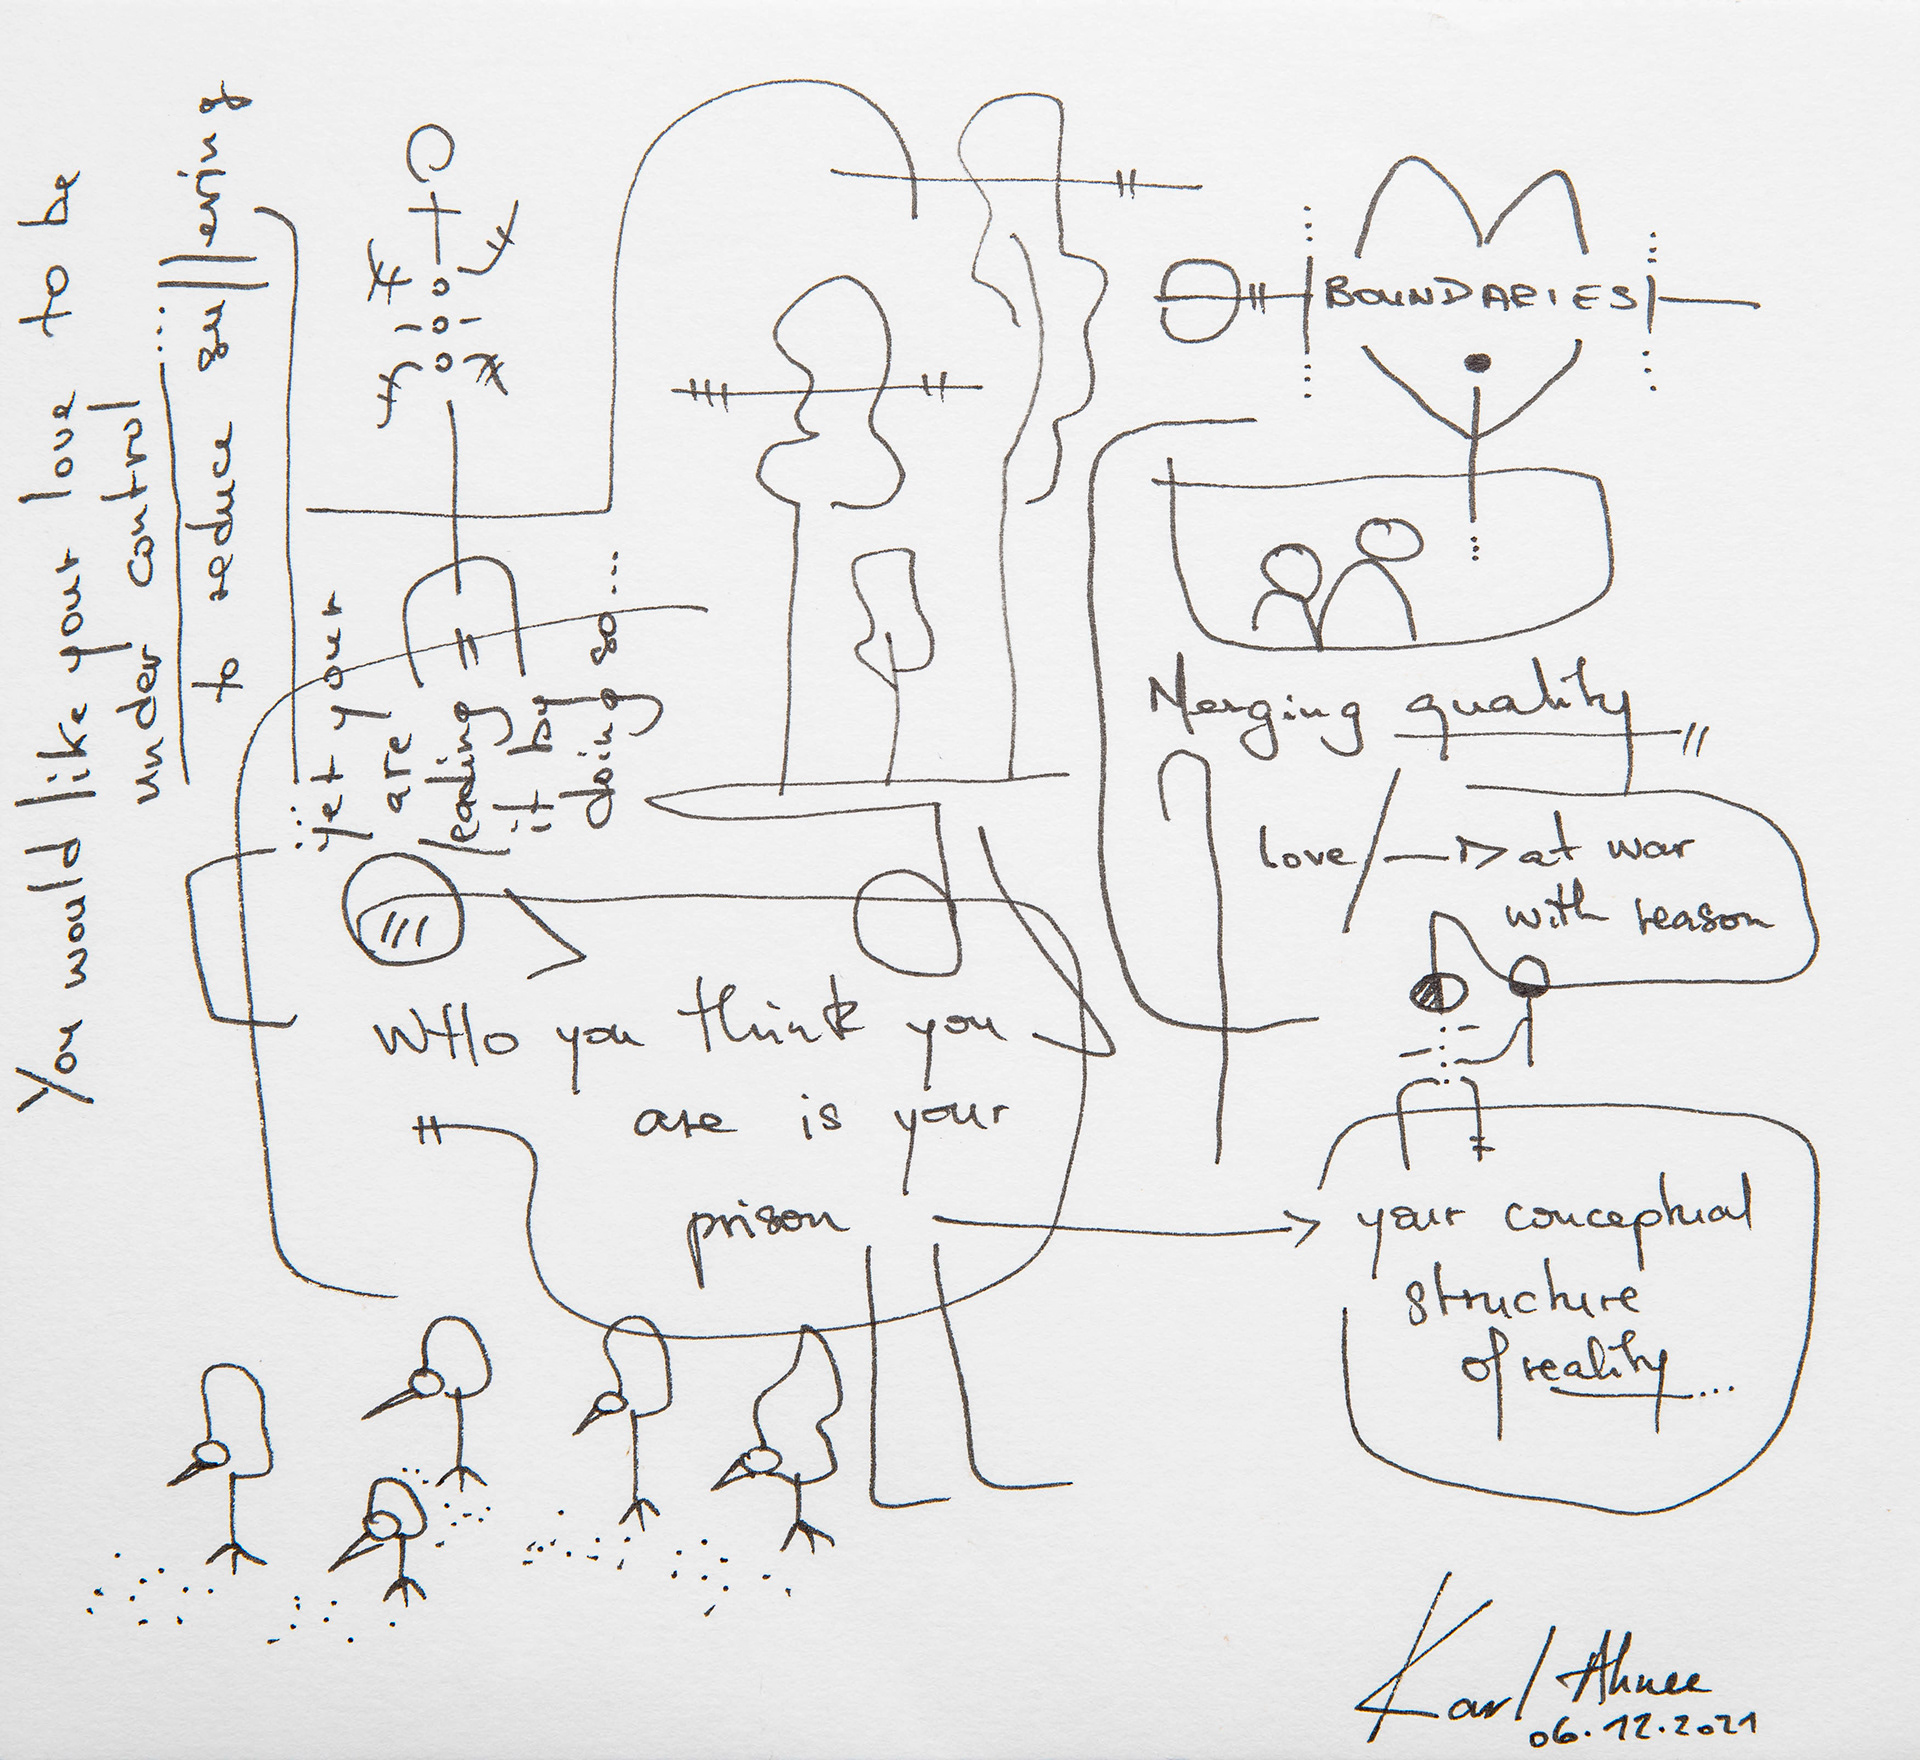 You would like your love to be
under control
to reduce suffering
...yet your
are
leading
it by
doing so...
BOUNDARIES
Merging quality
love / → at war
with reason
WHo you think you
are is your
prison
→ your conceptual
structure
of reality...
Karl Ahnee
06.12.2021